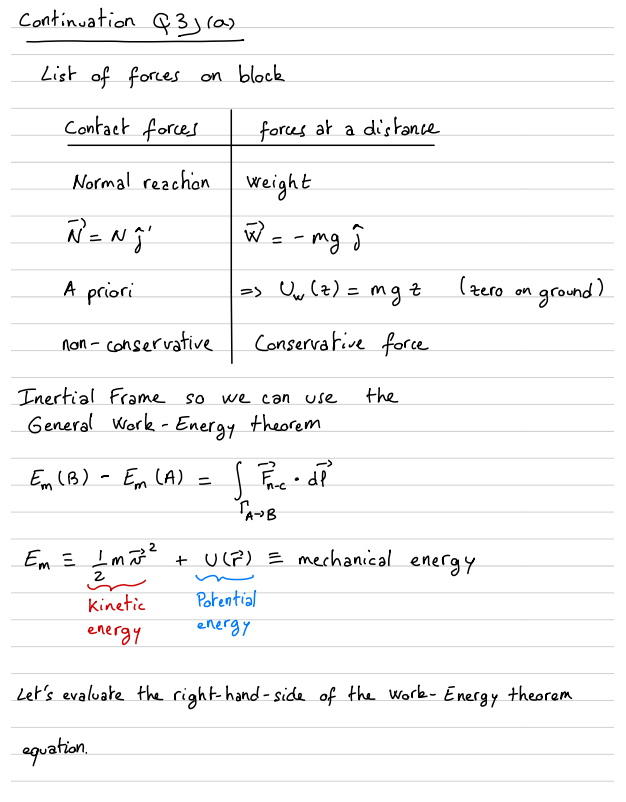 Continuation Q3)(a)
List of forces on block
Contact forces | forces at a distance
Normal reaction | weight
\vec{N} = N ĵ' | \vec{W} = - mg ĵ
A priori | => U_w(z) = mgz (zero on ground)
non-conservative | Conservative force
Inertial Frame so we can use the
General Work-Energy theorem
E_m(B) - E_m(A) = ∫_{Γ_{A→B}} \vec{F}_{n-c} · d\vec{l}
E_m ≡ \frac{1}{2} m \vec{v}^2 + U(\vec{r}) ≡ mechanical energy
Kinetic energy
Potential energy
Let's evaluate the right-hand-side of the Work-Energy theorem
equation.